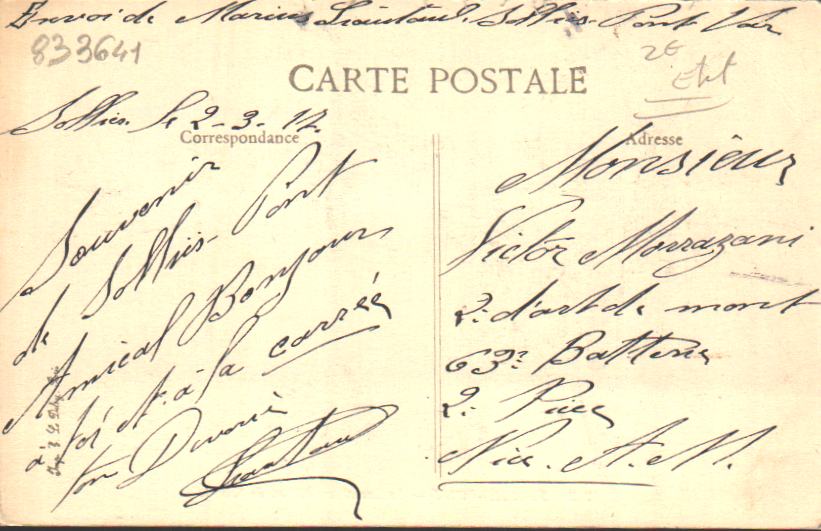 Envoi de Marius Liautaud. Solliès-Pont Var
833641
2E
Etat
CARTE POSTALE
Solliès le 2-3-12.
Correspondance
Souvenir
de Solliès-Pont
Amical Bonjour
à toi et à la carrée
ton Dévoué
Liautaud
Adresse
Monsieur
Victor Morrazani
2e d'art de mont
63e Batterie
2e Pièce
Nice. A. M.